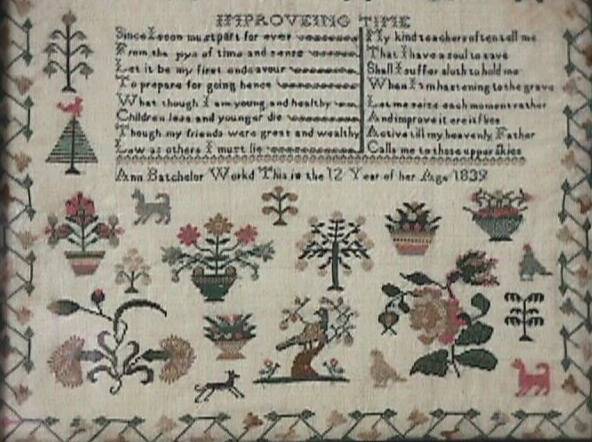 IMPROVEING TIME
Since I soon must part for ever
From the joys of time and sense
Let it be my first endeavour
To prepare for going hence
What though I am young and healthy
Children less and younger die
Though my friends were great and wealthy
Low as others I must lie
My kind teachers often tell me
That I have a soul to save
Shall I suffer sloth to hold me
When I am hastening to the grave
Let me seize each moment rather
And improve it ere it flies
Active till my heavenly Father
Calls me to those upper skies
Ann Batchelor Workd This in the 12 Year of her Age 1839